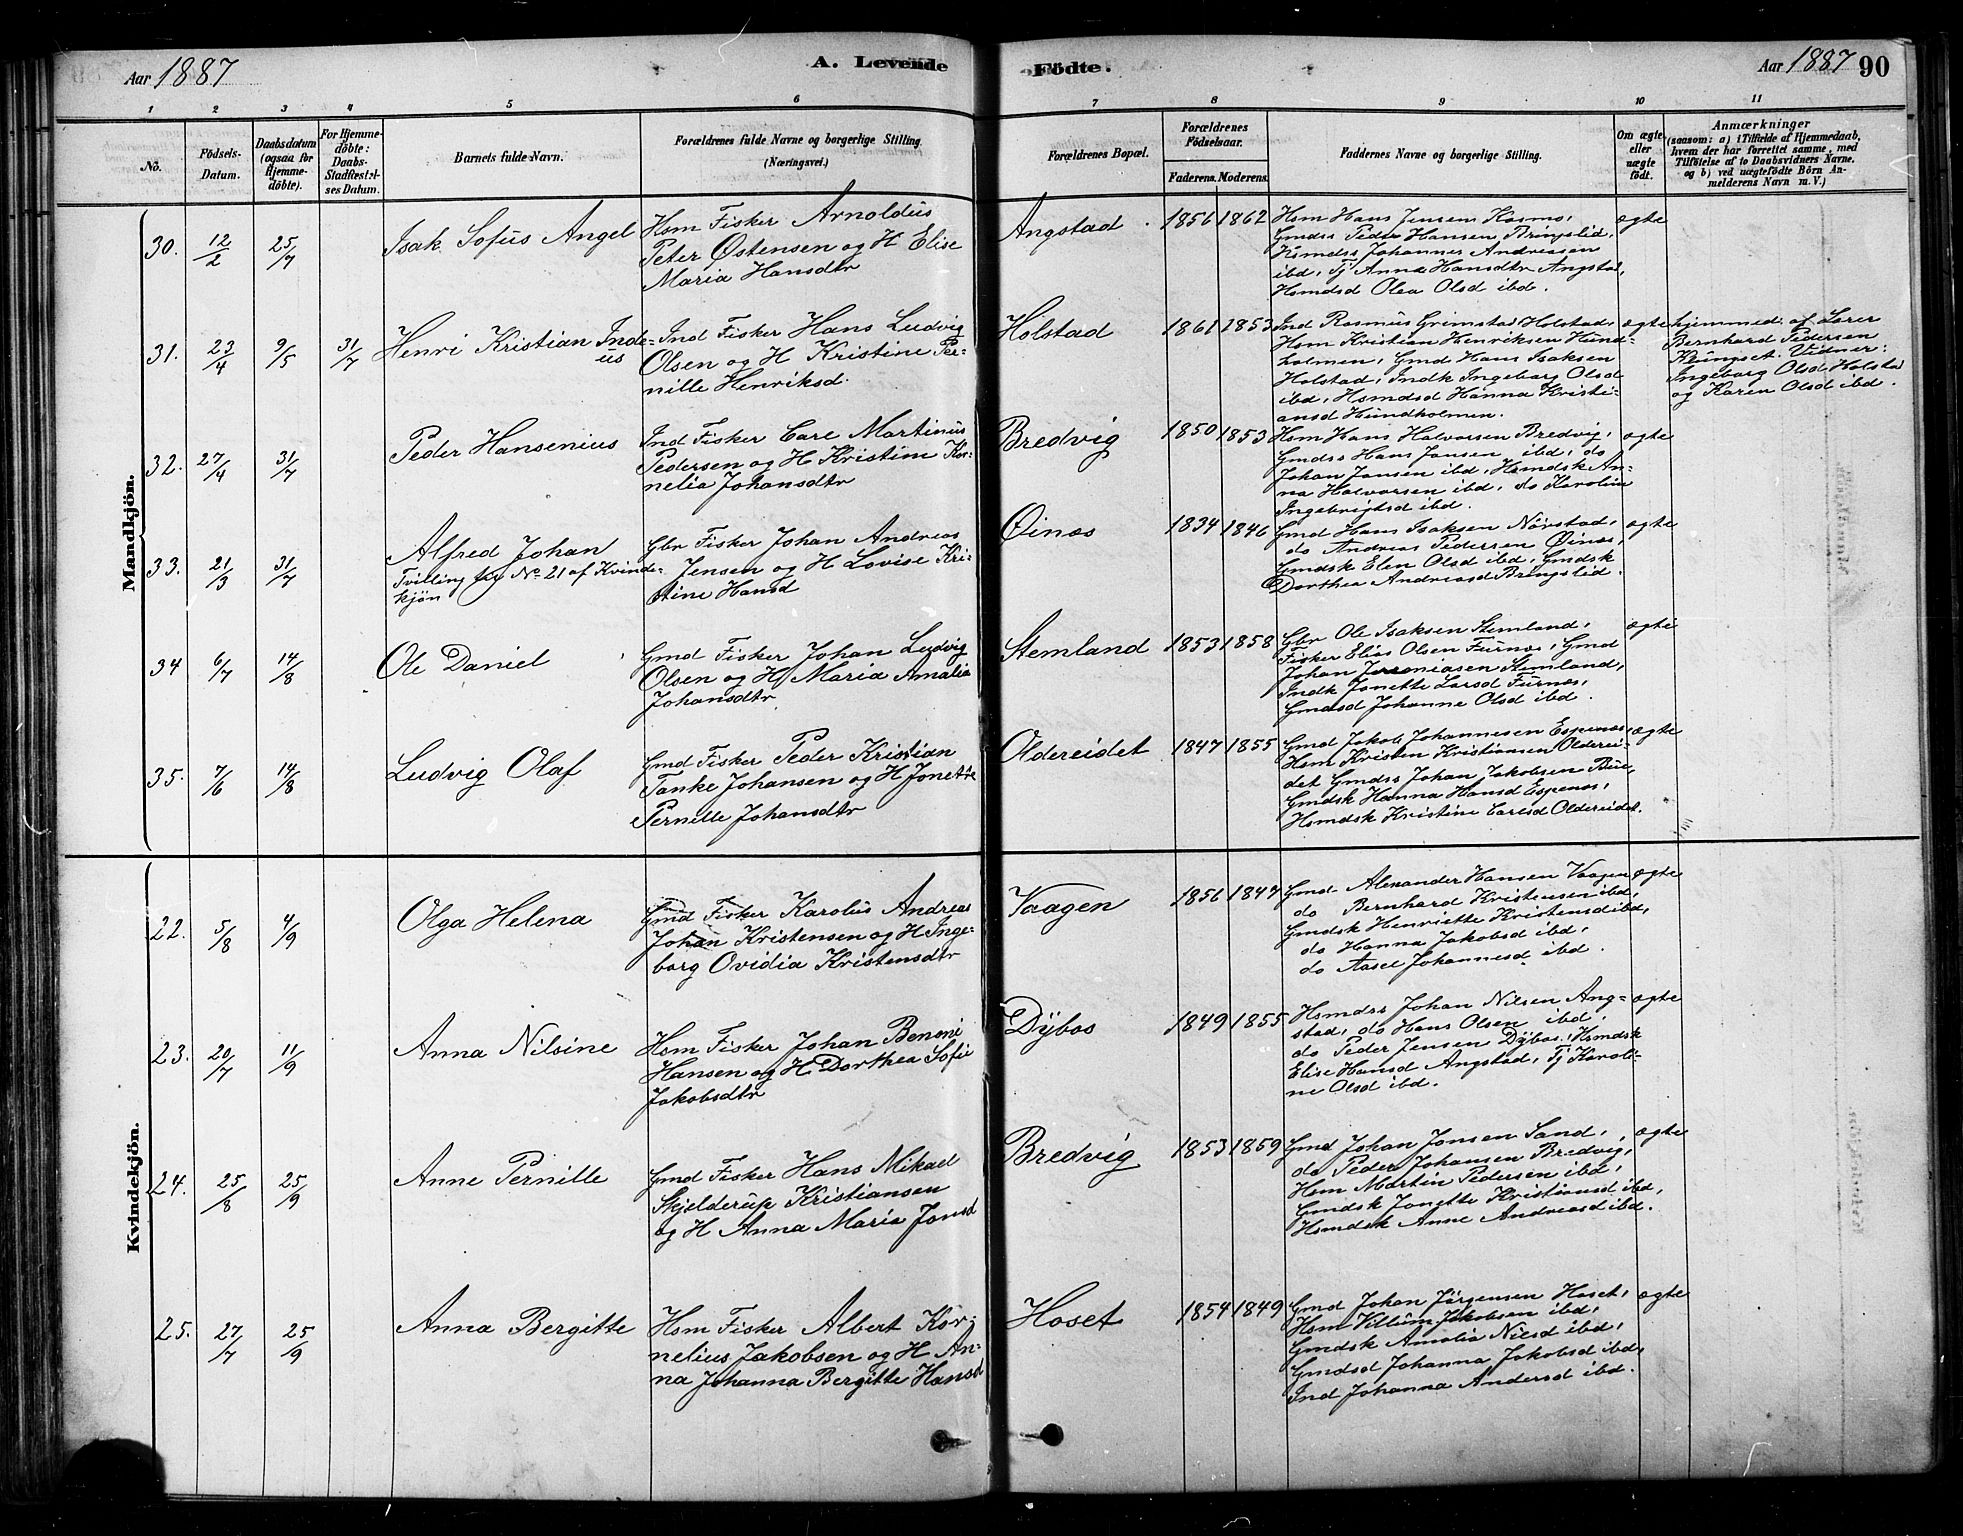 Aar 1887
A. Levende
Födte.
Aar 1887 90
1 2 3 4 5 6 7 8 9 10 11
No.
Födsels-Datum.
Daabsdatum (ogsaa for Hjemme-döbte).
For Hjemme-döbte: Daabs-Stadfæstel-ses Datum.
Barnets fulde Navn.
Forældrenes fulde Navne og borgerlige Stilling.
(Næringsvei.)
Forældrenes Bopæl.
Forældrenes Födselsaar.
Faderens. Moderens.
Faddernes Navne og borgerlige Stilling.
Om ægte eller uægte födt.
Anmærkninger
(saasom: a) i Tilfælde af Hjemmedaab,
hvem der har forrettet samme, med
Tilföielse af to Daabsvidners Navne,
og b) ved uægtefödte Börn An-
melderens Navn m. V.)
Mandkjön.
30. 12/2 25/7 Isak Sofus Angel
Hsm Fisker Arnoldus
Peter Østensen og H Elise
Maria Hansdtr
Angstad 1856 1862
Hsm Hans Jensen Kosmo,
Gmdss Peder Hansen Bringslid,
Hsmdss Johannes Andreasen
ibd, Tj Anna Hansdtr Angstad,
Hsmdsd Olea Olsd ibd.
ægte
31. 23/4 9/5 31/7 Henri Kristian Inde-
us
Ind Fisker Hans Ludvig
Olsen og H Kristine Per-
nille Henriksd.
Holstad 1861 1853
Ind Rasmus Grimstad Holstad,
Hsm Kristian Henriksen Hund-
holmen, Gmd Hans Isaksen
Holstad, Indk Ingeborg Olsd
ibd, Hsmdsd Hanna Kristi-
ansd Hundholmen.
ægte
hjemmed. af Lærer
Bernhard Pedersen
Klungset. Vidner:
Ingeborg Olsd Holstad
og Karen Olsd ibd.
32. 27/4 31/7 Peder Hansenius
Ind Fisker Care Martinus
Pedersen og H Kristine Kor-
nelia Johansdtr
Bredvig 1850 1853
Hsm Hans Halvorsen Bredvig,
Gmdss Hans Jonsen ibd, do
Johan Jonsen ibd, Hsmdsk An-
na Halvorsen ibd, do Karoline
Ingebrigtsd ibd.
ægte
33. 21/3 31/7 Alfred Johan
Tvilling fr No 21 af Kvinde-
kjøn
Gbr Fisker Johan Andreas
Jensen og H Lovise Kri-
stine Hansd
Øines 1834 1846
Gmd Hans Isaksen Nørstad,
do Andreas Pedersen Øines,
Gmdsk Elen Olsd ibd, Gmdsk
Dorthea Andreasd Bringslid.
ægte
34 6/7 14/8 Ole Daniel
Gmd Fisker Johan Ludvig
Olsen og H Maria Amalia
Johansdtr
Stemland 1853 1858
Gbr Ole Isaksen Stemland,
Fisker Elias Olsen Furnes, Gmd
Johan Jeremiasen Stemland,
Indk Jonette Larsd Furnes,
Gmdsd Johanne Olsd ibd.
ægte
35. 7/6 14/8 Ludvig Olaf
Gmd Fisker Peder Kristian
Tanke Johansen og H Jonette
Pernille Johansdtr
Oldereidet 1847 1855
Gmd Jakob Johannesen Espenes,
Hsm Kristen Kristiansen Olderei-
det Gmdss Johan Jakobsen Bue,
Gmdsk Hanna Hansd Espenes,
Hsmdsk Kristine Carlsd Oldereidet.
ægte
Kvindekjön.
22. 5/8 4/9 Olga Helena
Gmd Fisker Karolus Andreas
Johan Kristensen og H Inge-
borg Ovidia Kristensdtr
Vaagen 1856 1847
Gmd Alexander Hansen Vaagen
do Bernhard Kristensen ibd,
Gmdsk Henriette Kristensd ibd,
do Hanna Jakobsd ibd,
do Aasel Johannesd ibd.
ægte
23. 20/7 11/9 Anna Nilsine
Hsm Fisker Johan Benoni
Hansen og H Dorthea Sofie
Jakobsdtr
Dybos 1849 1855
Hsmdss Johan Nilsen Ang-
stad, do Hans Olsen ibd,
do Peder Jensen Dybos, Hsmdsk
Elise Hansd Angstad, Tj Karoli-
ne Olsd ibd.
ægte
24. 25/8 25/9 Anne Pernille
Gmd Fisker Hans Mikael
Skjelderup Kristiansen
og H Anna Maria Jonsd
Bredvig 1853 1859
Gmd Johan Jonsen Sand,
do Peder Johansen Bredvig,
Hsm Martin Pedersen ibd,
Gmdsk Jonette Kristiansd ibd,
Hsmdsk Anne Andreasd ibd.
ægte
25. 27/7 25/9 Anna Bergitte
Hsm Fisker Albert Kor-
nelius Jakobsen og H An-
na Johanna Bergitte Hansd
Hoset 1854 1849
Gmd Johan Jørgensen Hoset,
Hsm Villum Jakobsen ibd,
Gmdsk Amalia Nilsd ibd,
Gmdsd Johanna Jakobsd ibd,
Ind Johanna Andersd ibd.
ægte